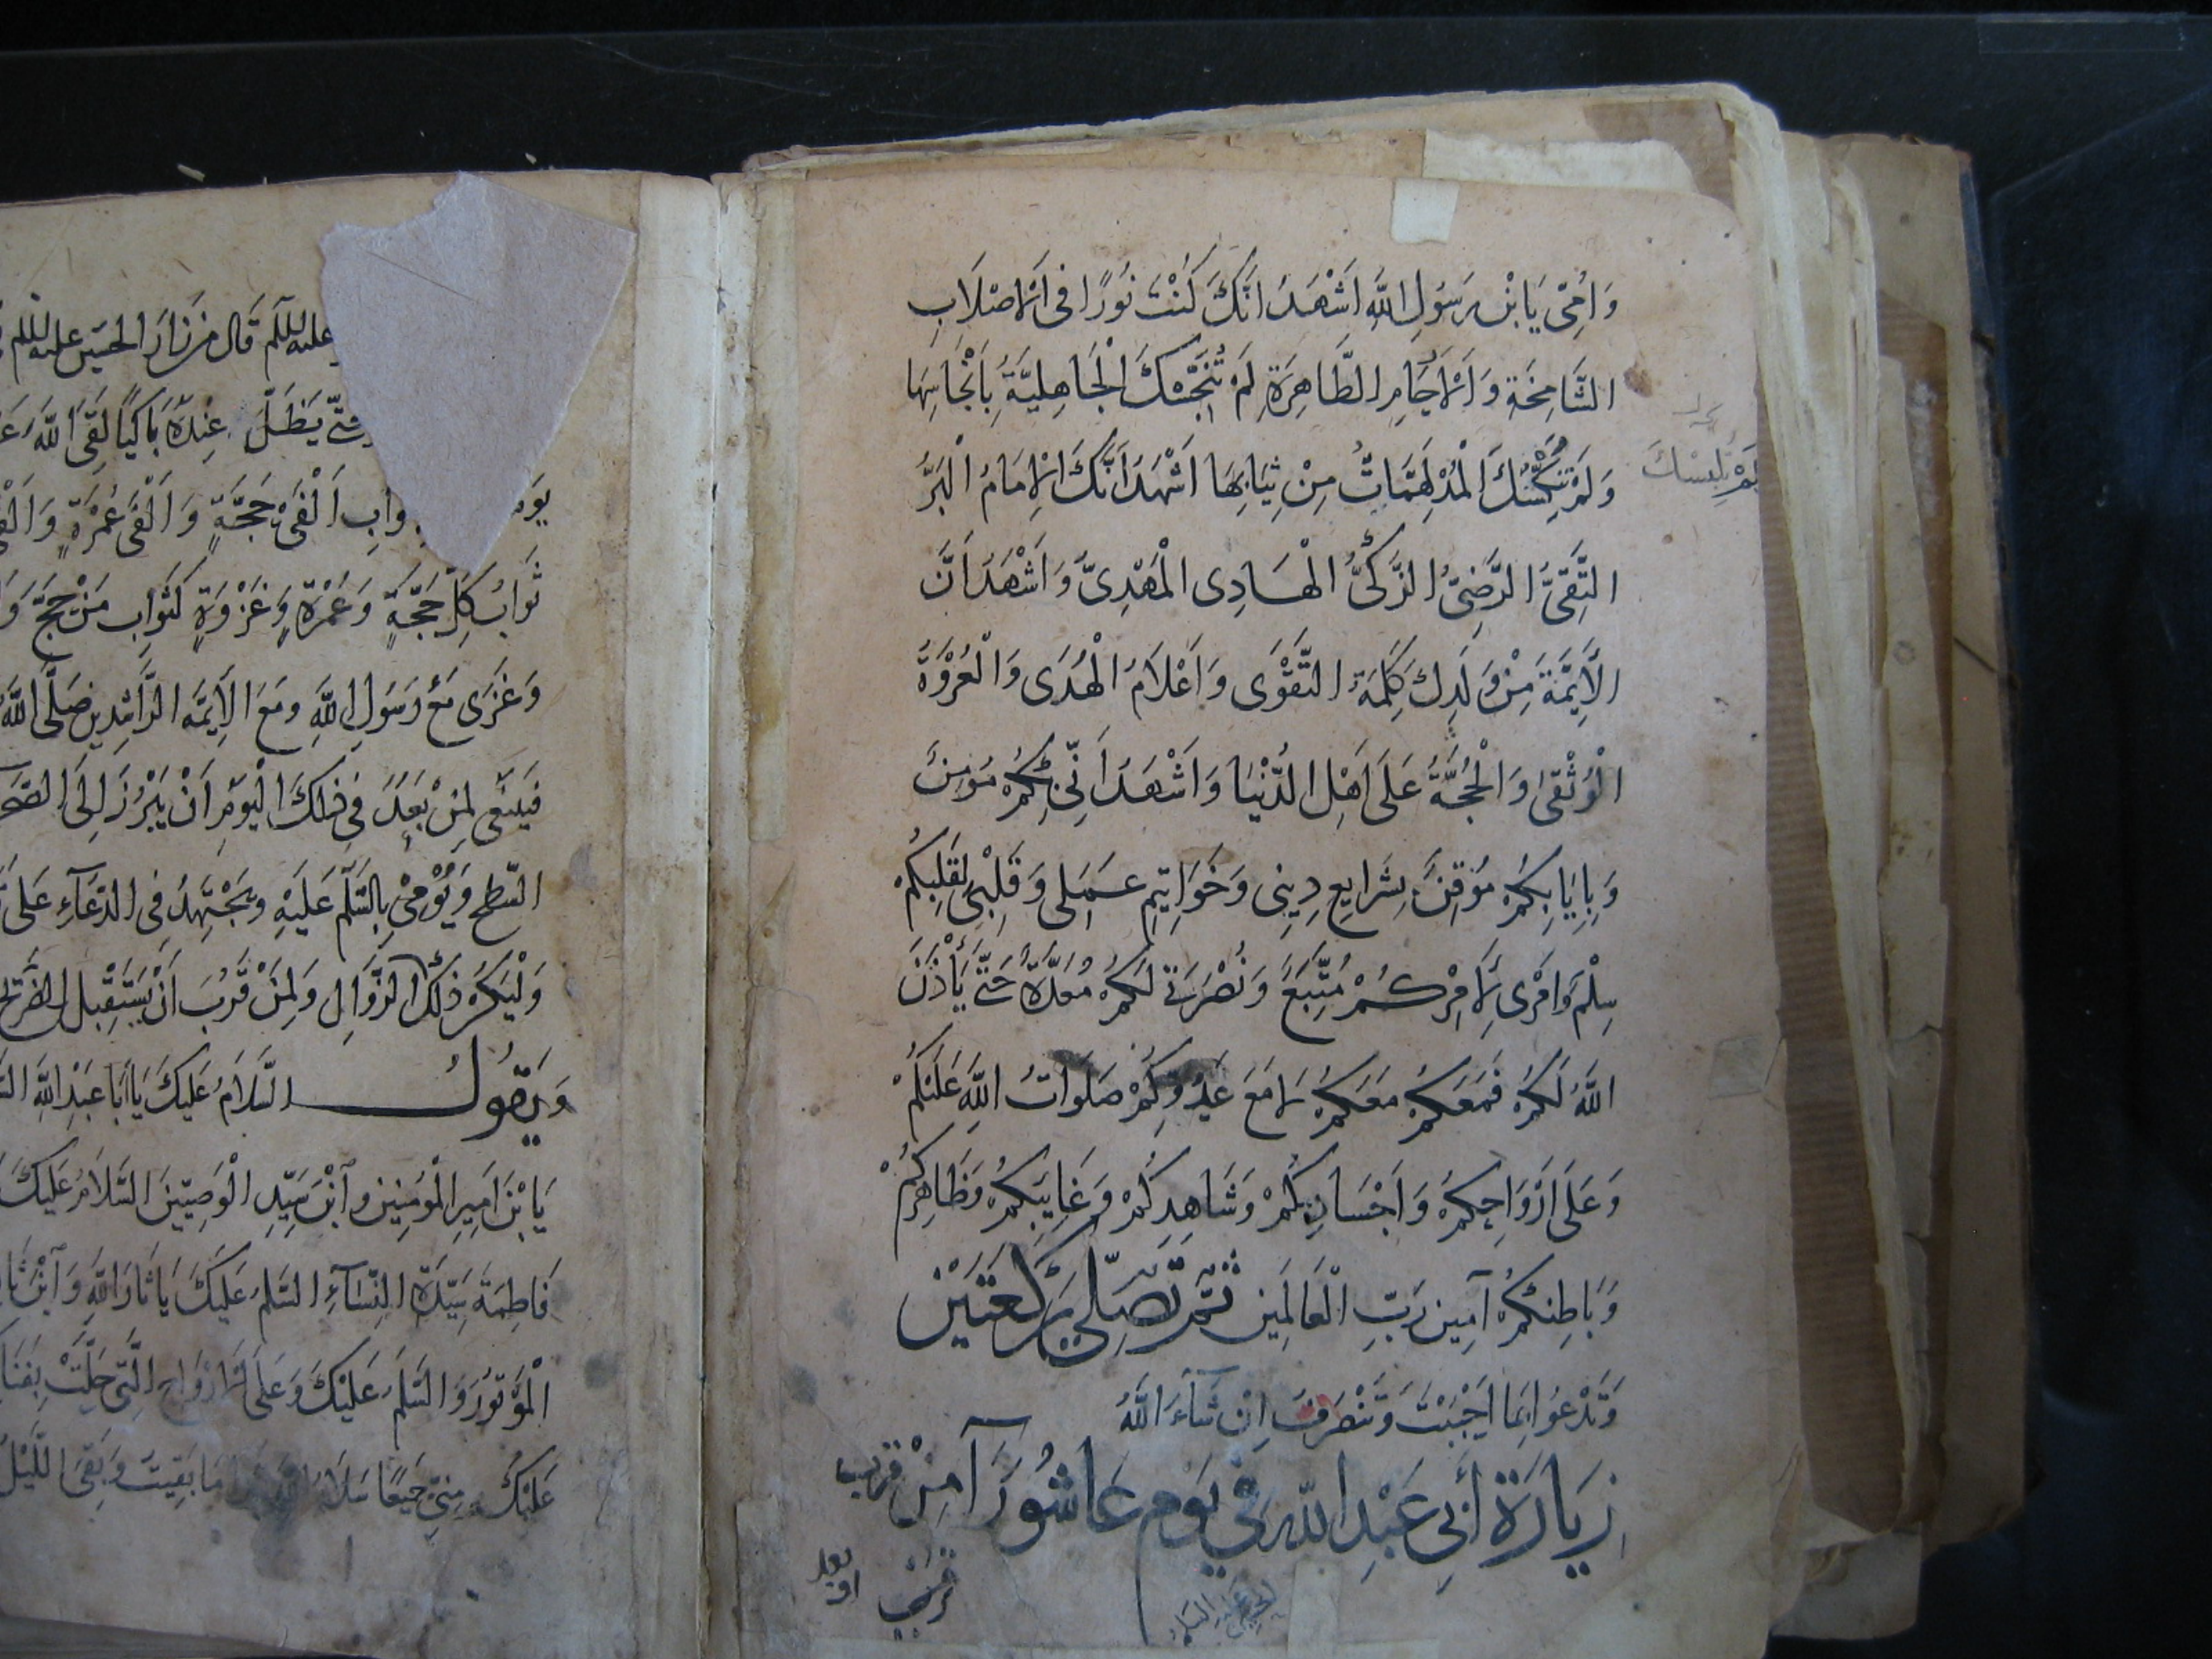 وَاُمِّى يَابْنَ رَسُولِ اللَّهِ اَشْهَدُ اَنَّكَ كُنْتَ نُورًا فِى الْاَصْلَابِ
الشَّامِخَةِ وَالْاَرْحَامِ الطَّاهِرَةِ لَمْ تُنَجِّسْكَ الْجَاهِلِيَّةُ بِاَنْجَاسِهَا
وَلَمْ الْمُدْلَهِمَّاتُ مِنْ ثِيَابِهَا اَشْهَدُ اَنَّكَ الْاِمَامُ الْبَرُّ
لم تلبسك
التَّقِىُّ الرَّضِىُّ الزَّكِىُّ الْهَادِى الْمَهْدِىُّ وَاَشْهَدُ اَنَّ
الْاَئِمَّةَ مِنْ وَلَدِكَ كَلِمَةُ التَّقْوَى وَاَعْلَامُ الْهُدَى وَالْعُرْوَةُ
الْوُثْقَى وَالْحُجَّةُ عَلَى اَهْلِ الدُّنْيَا وَاَشْهَدُ اَنِّى بِكُمْ مُؤْمِنٌ
وَبِاِيَابِكُمْ مُوقِنٌ بِشَرَايِعِ دِينِى وَخَوَاتِيمِ عَمَلِى وَقَلْبِى لِقَلْبِكُمْ
سِلْمٌ وَاَمْرِى لِاَمْرِكُمْ مُتَّبِعٌ وَنُصْرَتِى لَكُمْ مُعَدَّةٌ حَتَّى يَأْذَنَ
اللَّهُ لَكُمْ فَمَعَكُمْ مَعَكُمْ لَا مَعَ عَدُوِّكُمْ صَلَوَاتُ اللَّهِ عَلَيْكُمْ
وَعَلَى اَرْوَاحِكُمْ وَاَجْسَادِكُمْ وَشَاهِدِكُمْ وَغَايِبِكُمْ وَظَاهِرِكُمْ
وَبَاطِنِكُمْ آمِينَ رَبِّ الْعَالَمِينَ ثُمَّ تُصَلِّى رَكْعَتَيْنِ
وَتَدْعُوا بِمَا اَحْبَبْتَ وَتَنْصَرِفُ اِنْ شَآءَ اللَّهُ
زِيَارَةُ أَبِي عَبْدِ اللَّهِ فِي يَوْمِ عَاشُورَآءَ مِنْ قریب
او بعد
عليه السلم قَالَ مَنْ زَارَ الْحُسَيْنَ عليه السلم
حَتَّى يَظَلَّ عِنْدَهُ بَاكِيًا لَقِىَ اللَّهَ
ثواب اَلْفَىْ حَجَّةٍ وَاَلْفَىْ عُمْرَةٍ
ثَوَابُ كُلِّ حَجَّةٍ وَعُمْرَةٍ وَغَزْوَةٍ كَثَوَابِ مَنْ حَجَّ
وَغَزَى مَعَ رَسُولِ اللَّهِ وَمَعَ الْاَئِمَّةِ الرَّاشِدِينَ صَلَّى اللَّهُ
لِمَنْ بَعُدَ فِى ذٰلِكَ الْيَوْمِ اَنْ يَبْرُزَ اِلَى
السَّطْحِ وَيُؤْمِىَ بِالسَّلَمِ عَلَيْهِ وَيَجْتَهِدُ فِى الدُّعَآءِ عَلَى
ذٰلِكَ الزَّوَالِ وَلِمَنْ قَرُبَ اَنْ يَسْتَقْبِلَ الضَّرِيحَ
وَيَقُولُ السَّلَامُ عَلَيْكَ يَا اَبَا عَبْدِ اللَّهِ
يَابْنَ اَمِيرِ الْمُؤْمِنِينَ وَابْنَ سَيِّدِ الْوَصِيِّينَ السَّلَامُ عَلَيْكَ
فَاطِمَةَ سَيِّدَةِ النِّسَآءِ السَّلَمُ عَلَيْكَ يَا ثَارَ اللَّهِ وَابْنَ
الْمَوْتُورَ السَّلَمُ عَلَيْكَ وَعَلَى الْاَرْوَاحِ الَّتِى حَلَّتْ
عَلَيْكَ مِنِّى جَمِيعًا مَا بَقِيتُ وَبَقِىَ اللَّيْلُ